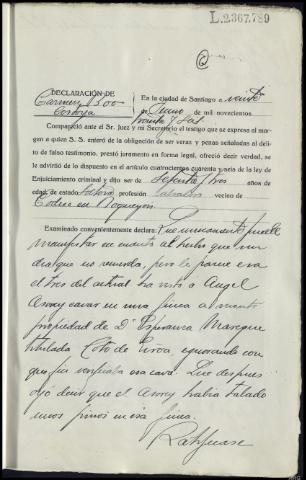 L.2.367.789
DECLARACIÓN DE
Carmen Boo
En la ciudad de Santiago a veinte
de Enero de mil novecientos
treinta y seis
Compareció ante el Sr. Juez y mi Secretario el testigo que se expresa al mar-
gen a quien S. S. enteró de la obligación de ser veraz y penas señaladas al deli-
to de falso testimonio, prestó juramento en forma legal, ofreció decir verdad, se
le advirtió de lo dispuesto en el artículo cuatrocientos cuarenta y seis de la ley de
Enjuiciamiento criminal y dijo ser de setenta y tres años de
edad, de estado soltera profesión labradora vecino de
Codeso en Boqueyon
Examinado convenientemente declara: Que unicamente puede
manifestar en cuanto al hecho que un
dia que no recuerda, pero le parece era
el tres del actual ha visto a Angel
Asorey cavar en una finca a monte
propiedad de Dª Esperanza
titulada Coto de ignorando con
que fin verificaba esa cava. Que despues
oyó decir que el Asorey habia talado
unos pinos en esa finca.